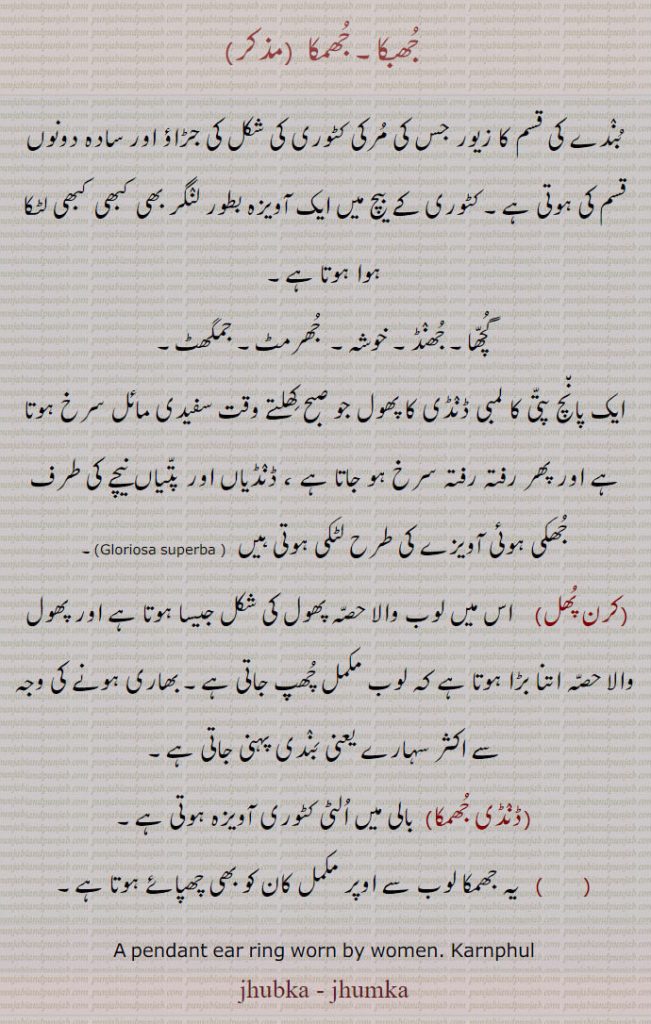 جُھبکا ۔ جُھمکا (مذکر)
بُنْدے کی قسم کا زیور جس کی مُرکی کٹوری کی شکل کی جڑاؤ اور سادہ دونوں
قسم کی ہوتی ہے ۔ کٹوری کے بیچ میں ایک آویزہ بطور لنْگر بھی کبھی کبھی لٹکا
ہوا ہوتا ہے ۔
گُچّھا ۔ جُھنْڈ ۔ خوشہ ۔ جُھرمٹ ۔ جمگھٹ ۔
ایک پانْچ پتّی کا لمبی ڈنْڈی کا پھول جو صبح کِھلتے وقت سفیدی مائل سرخ ہوتا
ہے اور پھر رفتہ رفتہ سرخ ہو جاتا ہے ، ڈنْڈیاں اور پتّیاں نیچے کی طرف
جُھکی ہوئی آویزے کی طرح لٹکی ہوتی ہیں (Gloriosa superba ) ۔
(کرن پُھل) اس میں لوب والا حصّہ پھول کی شکل جیسا ہوتا ہے اور پھول
والا حصّہ اتنا بڑا ہوتا ہے کہ لوب مکمل چُھپ جاتی ہے ۔ بھاری ہونے کی وجہ
سے اکثر سہارے یعنی بَنْدی پہنی جاتی ہے ۔
(ڈنْڈی جُھمکا) بالی میں اُلٹی کٹوری آویزہ ہوتی ہے ۔
( ) یہ جھمکا لوب سے اوپر مکمل کان کو بھی چھپائے ہوتا ہے ۔
A pendant ear ring worn by women. Karnphul
jhubka - jhumka